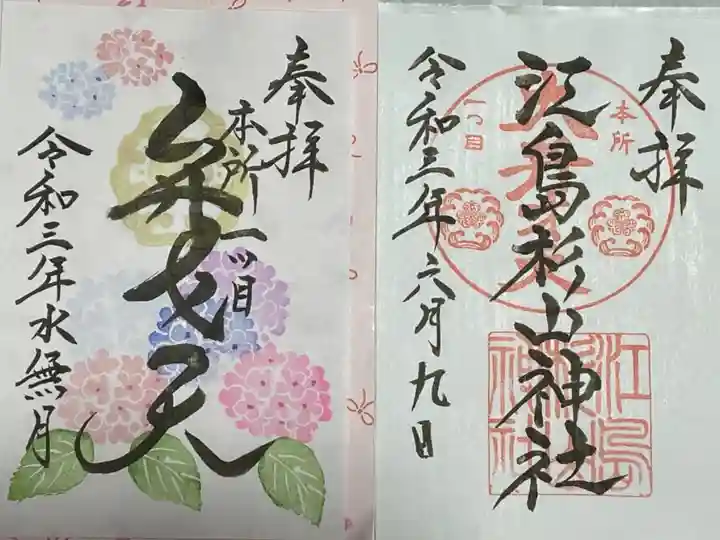 奉拝
江島杉山神社
令和三年六月九日
本所
一つ目
江島
杉山
神社
奉拝
本所一ツ目
弁才天
令和三年水無月